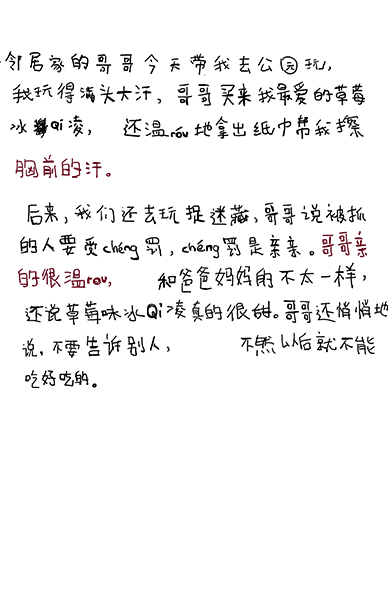 邻居家的哥哥今天带我去公园玩，
我玩得满头大汗，哥哥买来我最爱的草莓
冰Qi凌，还温róu地拿出纸巾帮我擦
胸前的汗。
后来，我们还去玩捉迷藏，哥哥说被抓
的人要受chéng罚，chéng罚是亲亲。哥哥亲
的很温rou，和爸爸妈妈的不太一样，
还说草莓味冰Qi凌真的很甜。哥哥还悄悄地
说，不要告诉别人，不然以后就不能
吃好吃的。